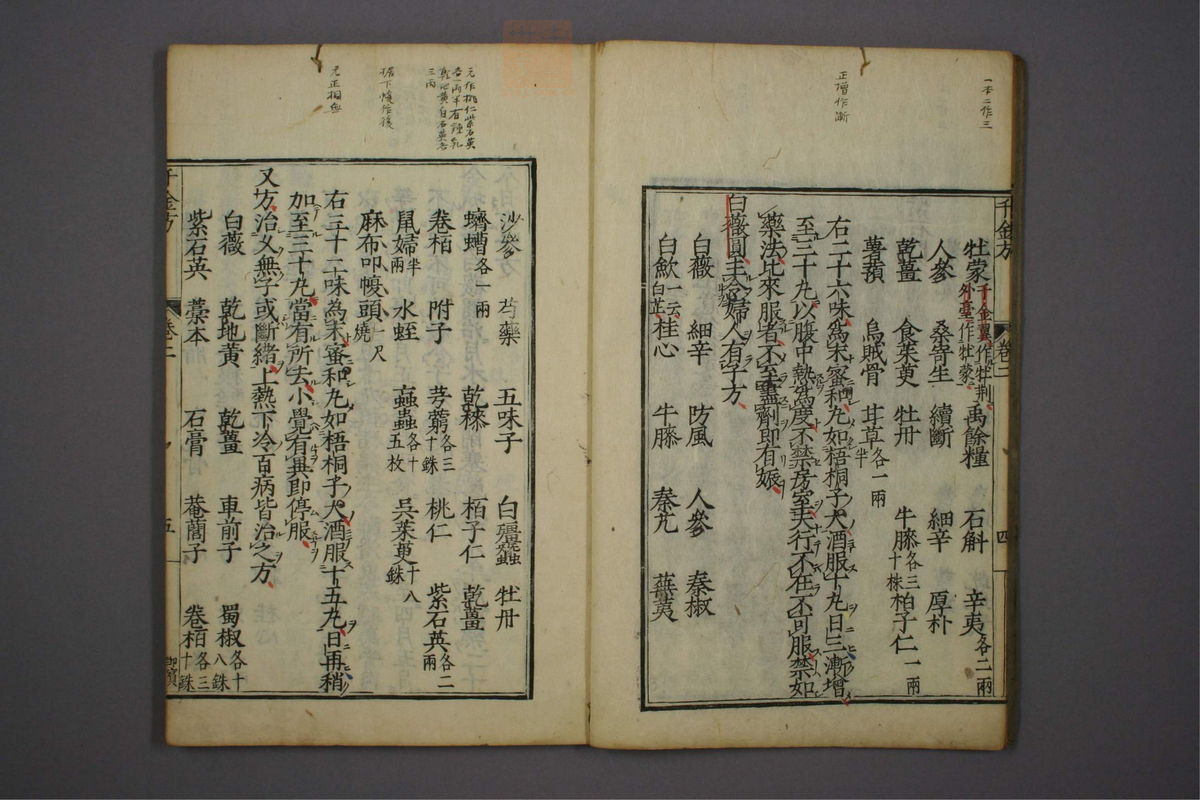 一本二作三
正増作漸
千金方 卷二 四
牡蒙千金翼作牡荆外臺作牡蒙 禹餘糧 石斛 辛夷各二兩
人參 桑寄生 續斷 細辛 厚朴
乾薑 食茱萸 牡丹 牛膝各三十株 柏子仁一兩
薯蕷 烏賊骨 茸草各一兩半
右二十六味爲末蜜和丸如梧桐子大酒服十丸日三漸增
至三十丸以腹中熱爲度不禁房室夫行不在不可服禁如
藥法比來服者不至盡劑即有娠
白薇圓主令婦人有子方
白薇 細辛 防風 人參 秦椒
白歛一云白芷 桂心 牛膝 秦艽 蕪荑
元作桃仁紫石英
三兩
据下幞作後
元正桐無
沙參 芍藥 五味子 白殭蠶 牡丹
蠐螬各一兩 乾漆 栢子仁 乾薑
卷栢 附子 芎藭各三十銖 桃仁 紫石英各二兩
鼠婦半兩 水蛭 䖟蟲各十五枚 吳茱萸十八銖
麻布叩幞頭一尺燒
右三十二味爲末蜜和丸如梧桐子大酒服十五丸日再稍
加至三十丸當有所去小覺有異即停服
又方治久無子或斷緒上熱下冷百病皆治之方
白薇 乾地黃 乾薑 車前子 蜀椒各十八銖
紫石英 藁本 石膏 菴䕡子 卷栢各三十銖
千金方 卷二 五